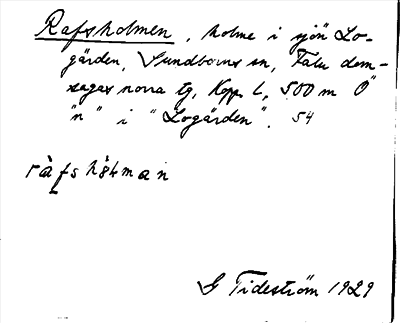 Rafsholmen, holme i sjön Lo-
gärden, Sundborns sn, Falu dom-
sagas norra tg, Kopp. l., 500 m Ö
"n" i "Logärden". 54
G Tideström 1929